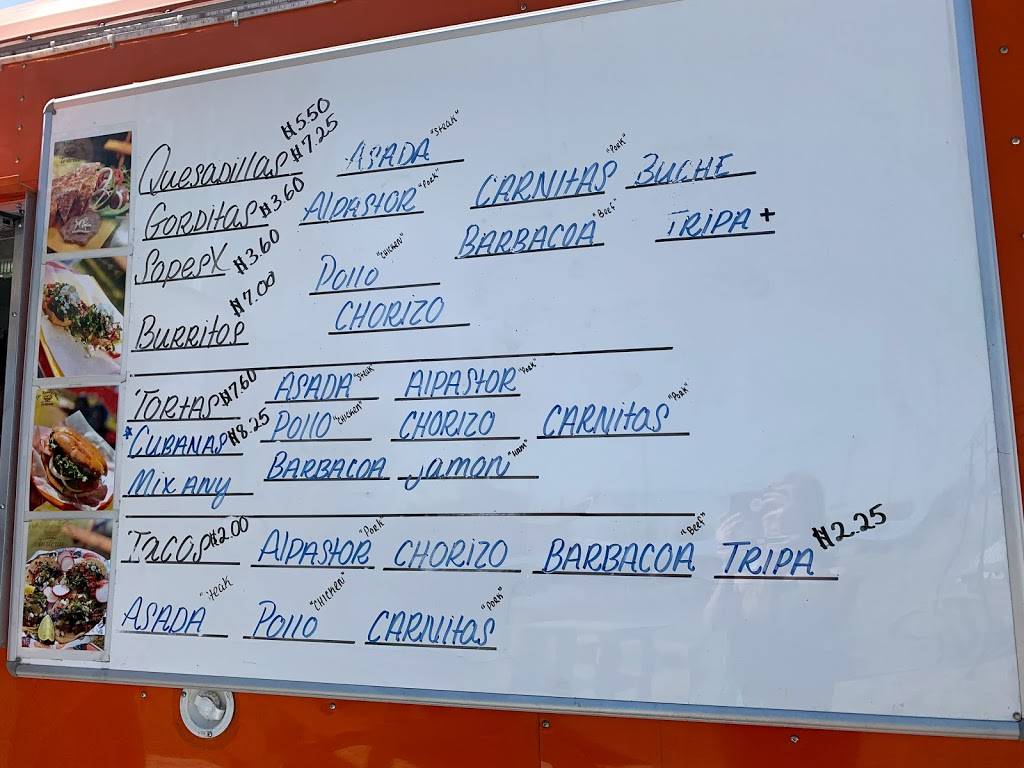 $5.50
Quesadillas $7.25 ASADA "Steak"
GORDITAS $3.60 AlPASTOR "Pork" CARNITAS "Pork" BUCHE
Sopes X $3.60 Pollo "CHICKEN" BARBACOA "Beef" TRIPA +
BURRITOS $7.00 CHORIZO
TORTAS $7.60 ASADA "Steak" AlPAStOR "Pork"
*CUBANAS $8.25 POllO "CHICKEN" CHORIZO CARNitAS "Pork"
Mix ANY BARBACOA jamon "HAM"
TACOS $2.00 AlPAStOR "PORK" CHORIZO BARBACOA "Beef" TRIPA $2.25
ASADA "Steak" POllO "CHICKEN" CARNitAS "PORK"